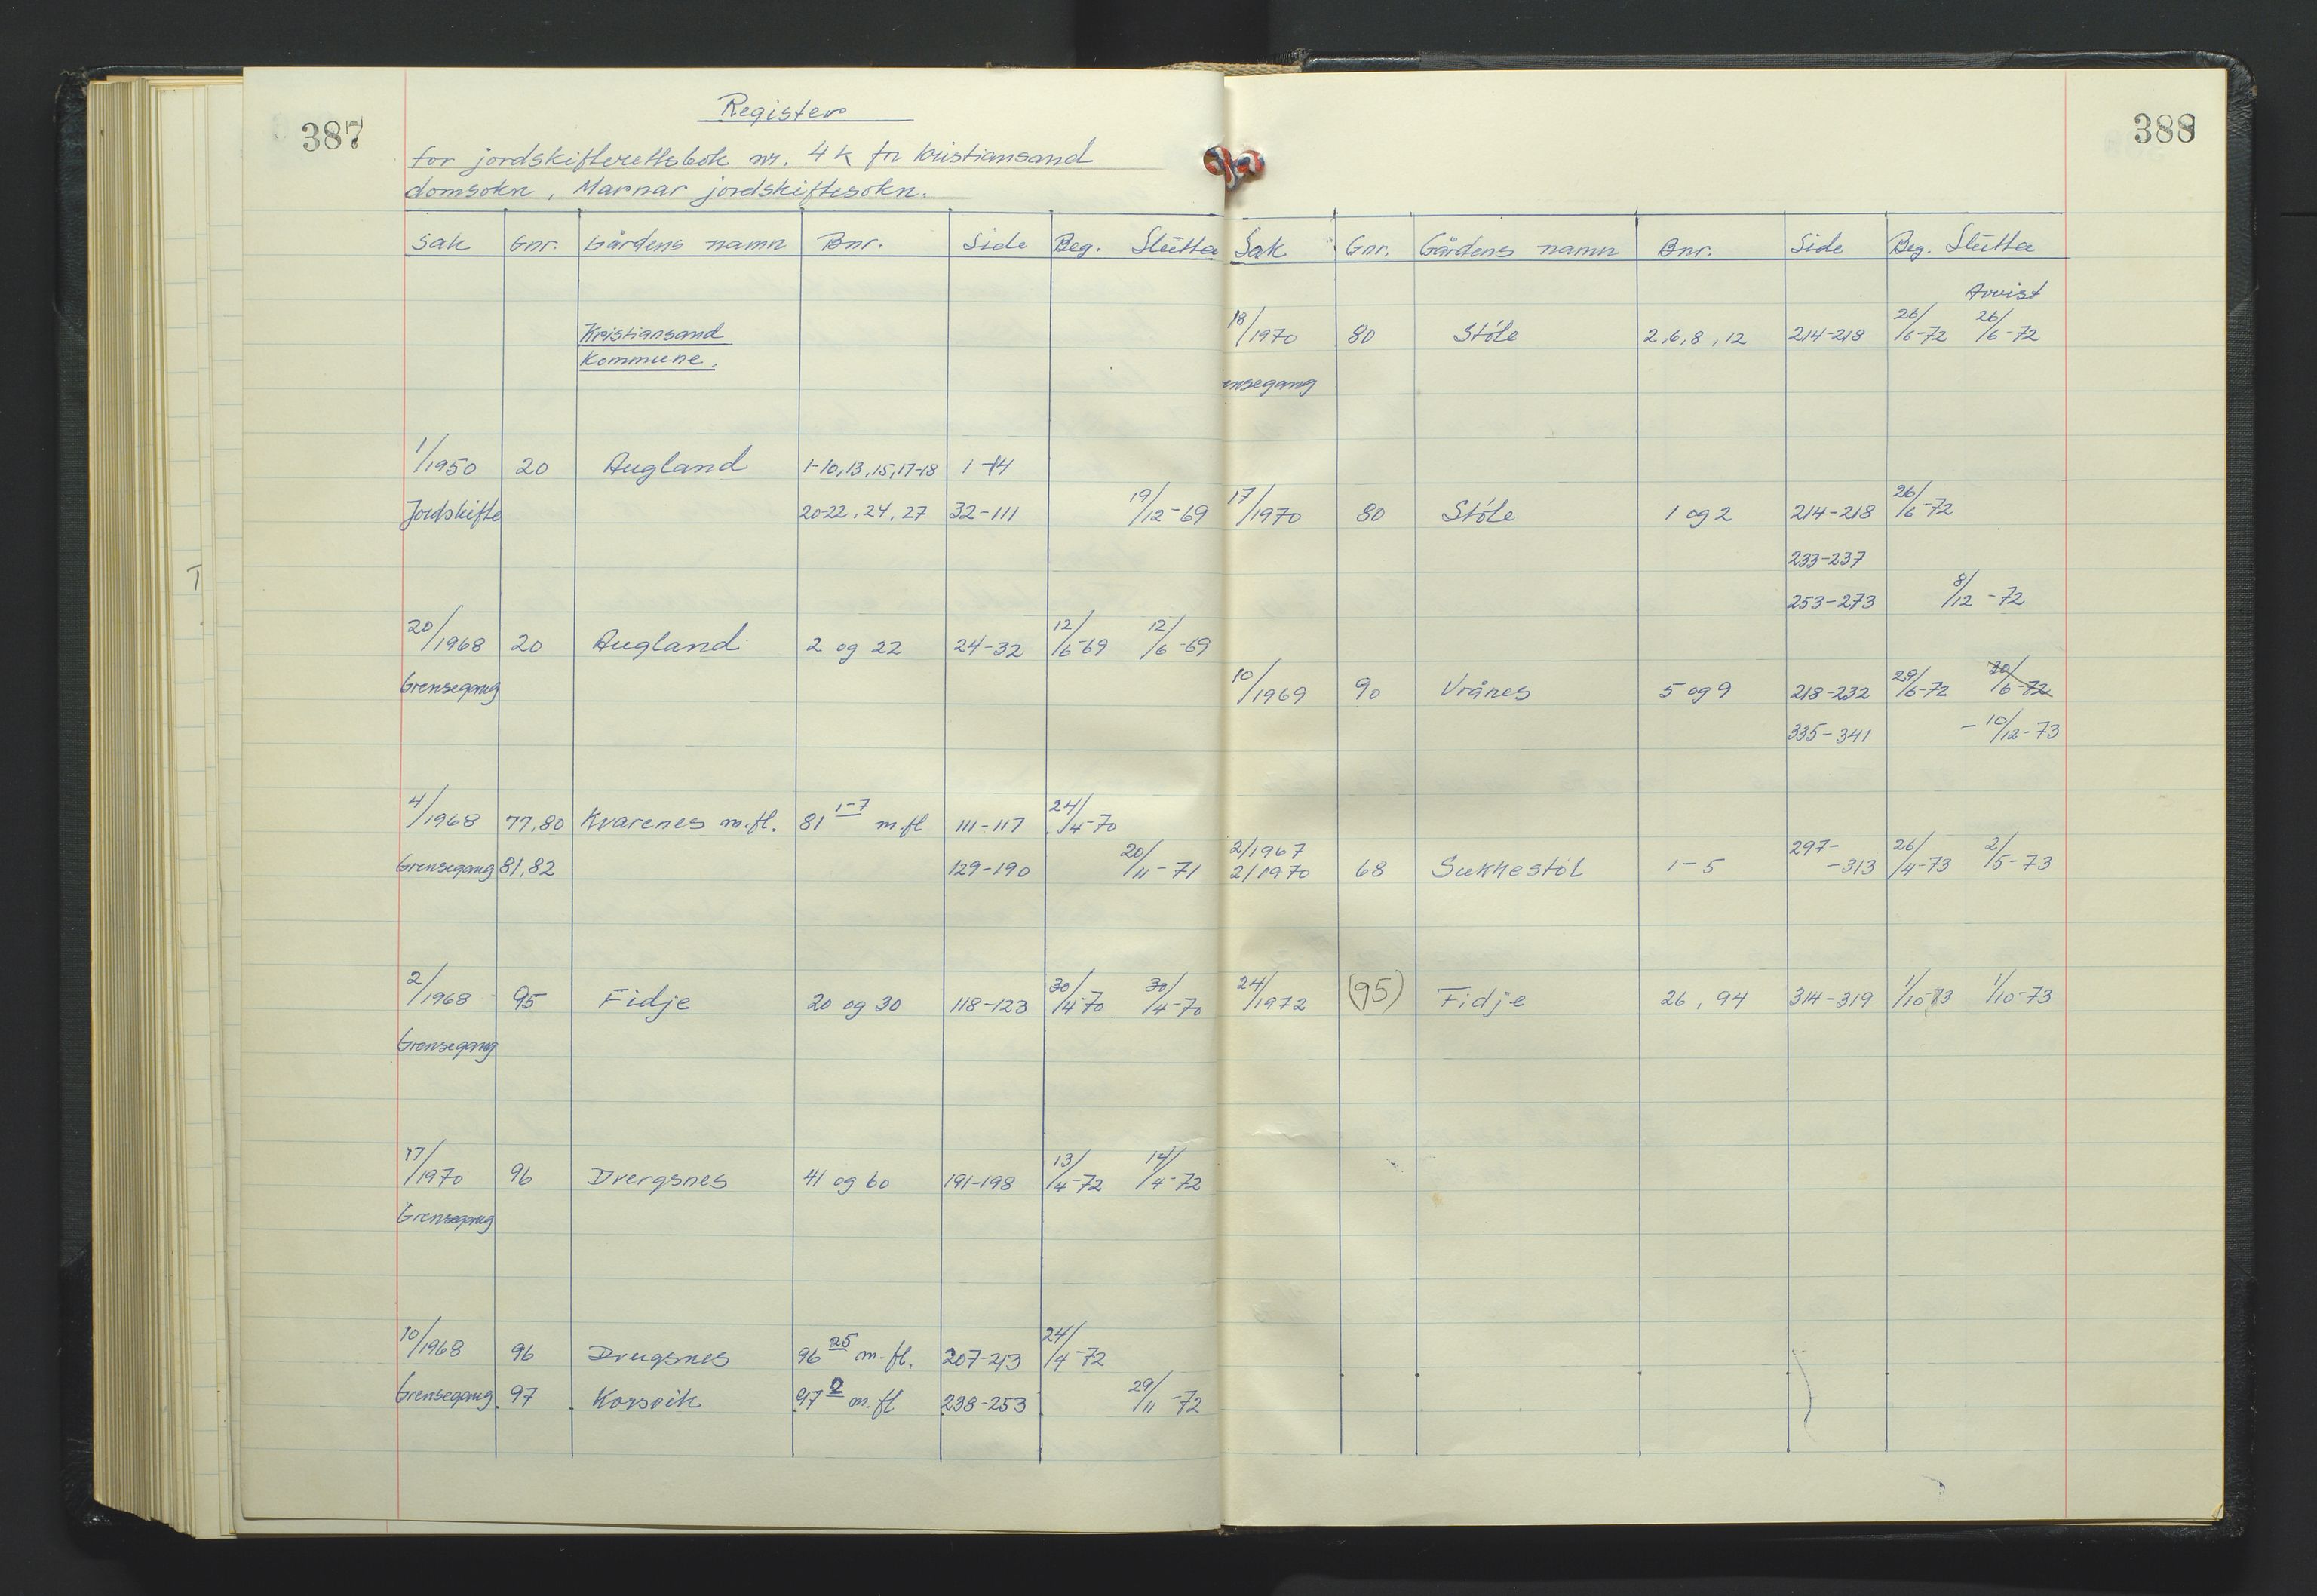 387
Register
for jordskifterettsbok nr. 4 K for Kristiansand
domsokn, Marnar jordskiftesokn.
Sak Gnr. Gårdens namn Bnr. Side Beg. Slutta
Kristiansand
Kommune.
1/1950 20 Augland 1-10, 13, 15, 17-18 1-14
Jordskifte 20-22, 24, 27 32-111 19/12-69
20/1968 20 Augland 2 og 22 24-32 12/6-69 12/6-69
Grensegang
4/1968 77,80 Kvarenes m.fl. 81 1-7 m.fl 111-117 24/4-70
Grensegang 81,82 129-190 20/11-71
2/1968 95 Fidje 20 og 30 118-123 30/4-70 30/4-70
Grensegang
17/1970 96 Drergsnes 41 og 60 191-198 13/4-72 14/4-72
Grensegang
10/1968 96 Drugsnes 96 25 m.fl. 207-213 24/4-72
Grensegang 97 Korsvik 97 2 m.fl 238-253 29/11-72
388
Sak Gnr. Gårdens namn Bnr. Side Beg. Slutta
Avvist
18/1970 80 Stóle 2,6,8,12 214-218 26/6-72 26/6-72
ensegang
17/1970 80 Stóle 1 og 2 214-218 26/6-72
233-237
253-273 8/12-72
10/1969 90 Vrånes 5 og 9 218-232 29/6-72 30/6-72
335-341 -10/12-73
2/1967 297-
2/1970 68 Sukkestól 1-5 -313 26/4-73 2/5-73
24/1972 (95) Fidje 26, 94 314-319 1/10-73 1/10-73